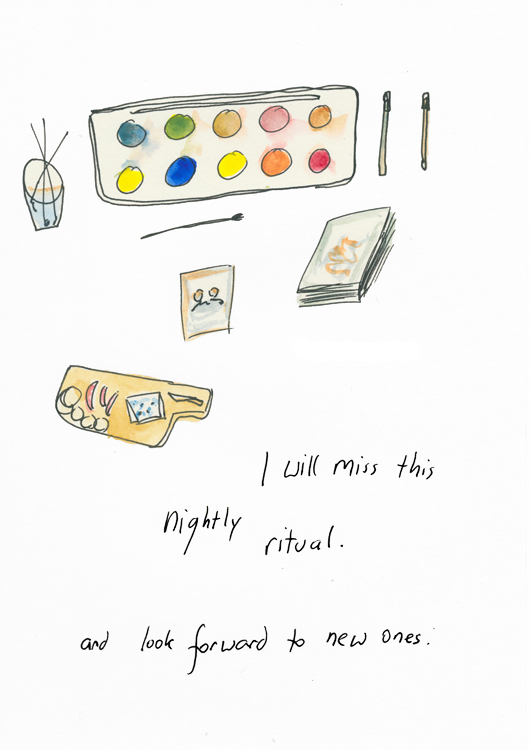 I will miss this
nightly
ritual.
and look forward to new ones.